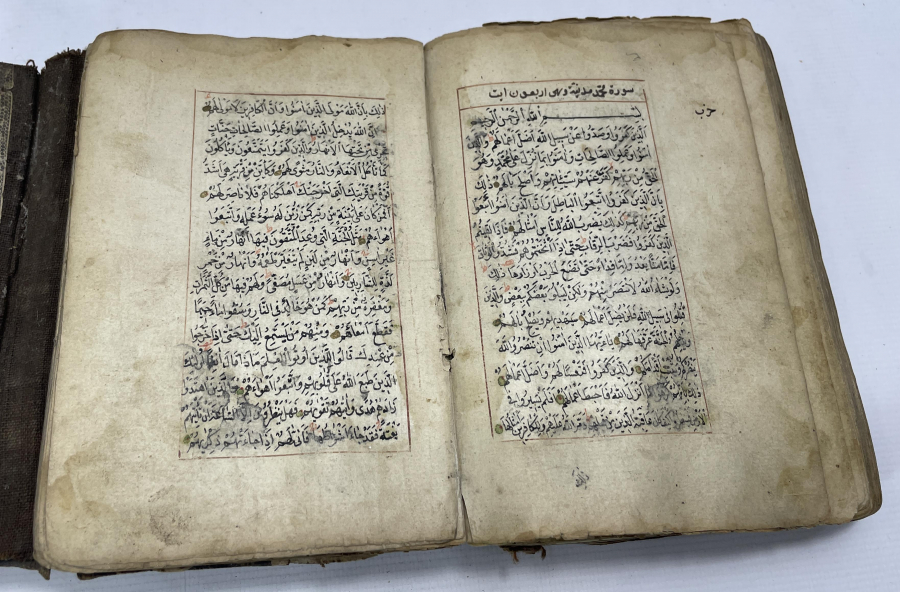 سورة محمد مدنية وهي اربعون ايت
حزب
بسم الله الرحمن الرحيم
الذين كفروا وصدوا عن سبيل الله اضل اعمالهم والذين
امنوا وعملوا الصالحات وامنوا بما نزل على محمد وهو
الحق من ربهم كفر عنهم سيئاتهم واصلح بالهم ذلك
بان الذين كفروا اتبعوا الباطل وان الذين امنوا اتبعوا
الحق من ربهم كذلك يضرب الله للناس امثالهم فاذا لقيتم
الذين كفروا فضرب الرقاب حتى اذا اثخنتموهم فشدوا الوثاق
فاما منا بعد واما فداء حتى تضع الحرب اوزارها ذلك
ولو يشاء الله لانتصر منهم ولكن ليبلو بعضكم ببعض والذين
قتلوا في سبيل الله فلن يضل اعمالهم سيهديهم ويصلح بالهم
ويدخلهم الجنة عرفها لهم يا ايها الذين امنوا ان تنصروا الله
ينصركم ويثبت اقدامكم والذين كفروا فتعسا لهم واضل اعمالهم
ما انزل الله فاحبط اعمالهم افلم يسيروا في
الارض كيف كان عاقبة الذين من قبلهم دمر الله عليهم وللكافرين امثالها
ذلك
ذلك بان الله مولى الذين امنوا وان الكافرين لا مولى لهم
ان الله يدخل الذين امنوا وعملوا الصالحات جنات
تجري من تحتها الانهار والذين كفروا يتمتعون وياكلون
كما تاكل الانعام والنار مثوى لهم وكاين من قرية هي اشد
قوة من قريتك التي اخرجتك اهلكناهم فلا ناصر لهم
افمن كان على بينة من ربه كمن زين له سوء عمله واتبعوا
اهواءهم مثل الجنة التي وعد المتقون فيها انهار من ماء
غير اسن وانهار من لبن لم يتغير طعمه وانهار من خمر
لذة للشاربين وانهار من عسل مصفى ولهم فيها من كل الثمرات
ومغفرة من ربهم كمن هو خالد في النار وسقوا ماء حميما
فقطع امعاءهم ومنهم من يستمع اليك حتى اذا خرجوا
من عندك قالوا للذين اوتوا العلم ماذا قال انفا اولئك
الذين طبع الله على قلوبهم واتبعوا اهواءهم والذين اهتدوا
زادهم هدى واتيهم تقويهم فهل ينظرون الا الساعة ان تاتيهم
بغتة فقد جاء اشراطها فانى لهم اذا جاءتهم ذكريهم